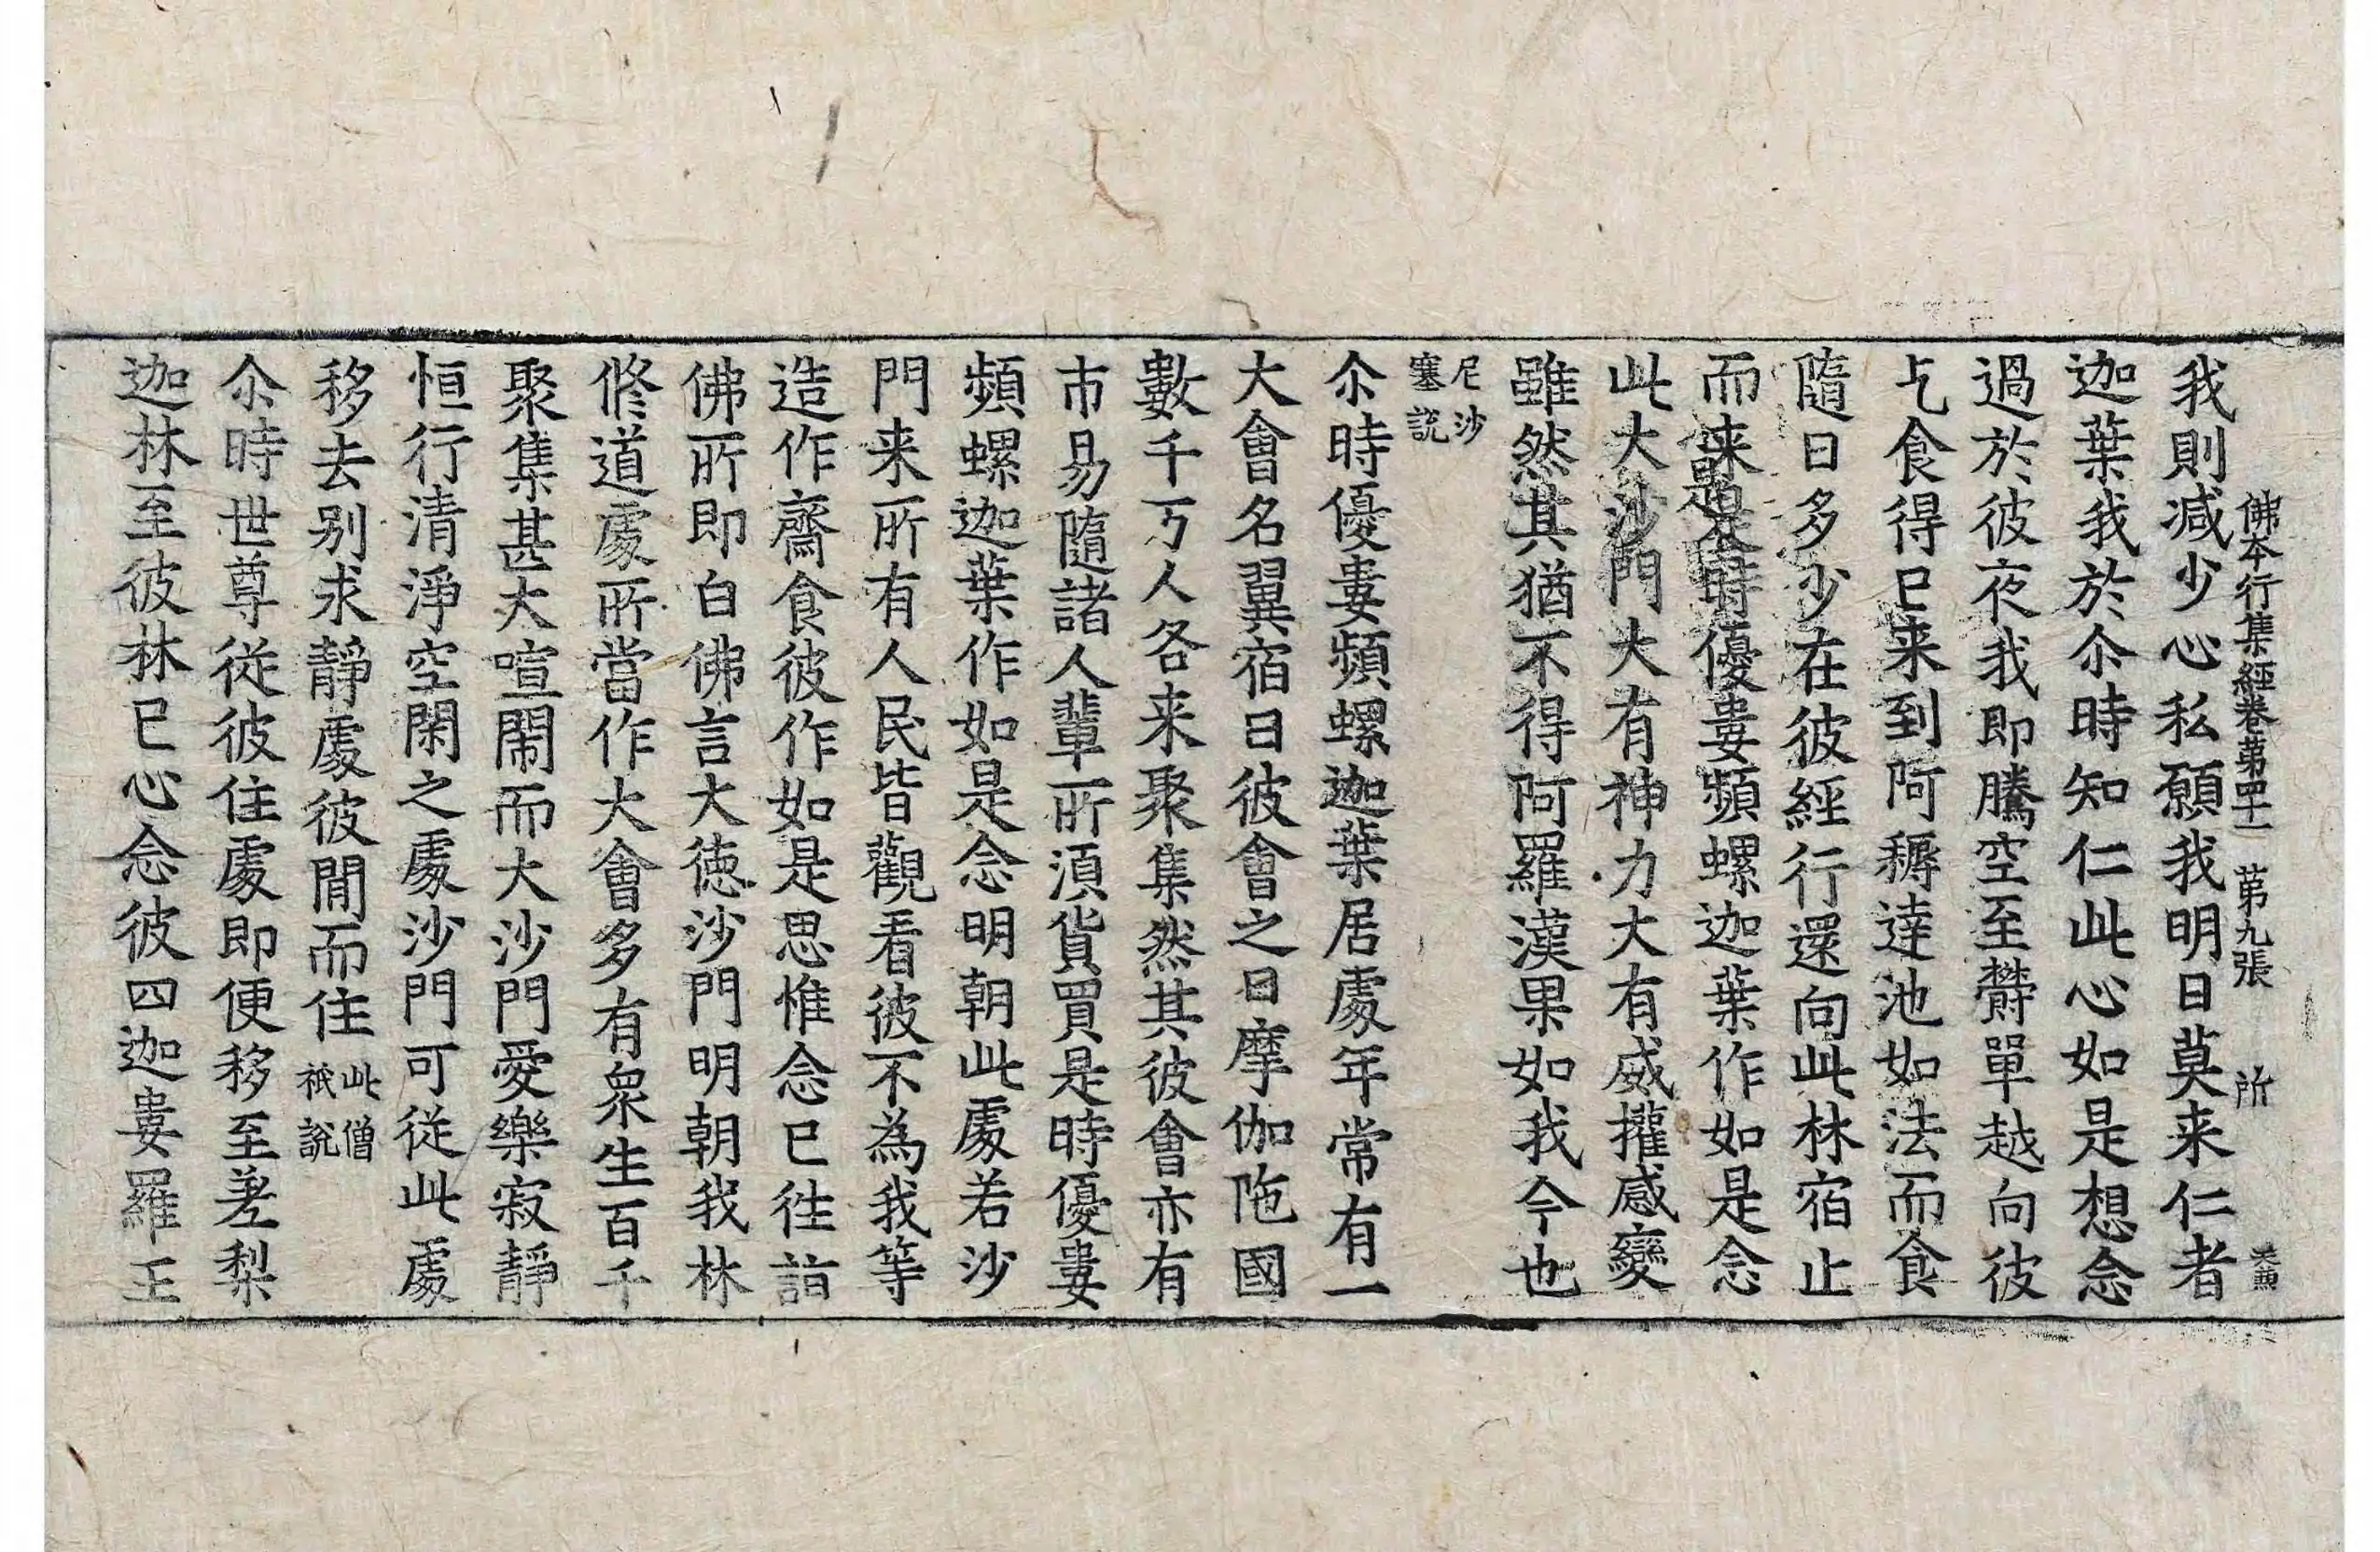 佛本行集經卷第四十一 第九張 所
我則減少心私願我明日莫来仁者
迦葉我於尒時知仁此心如是想念
過於彼夜我即騰空至欝單越向彼
乞食得已来到阿耨達池如法而食
隨日多少在彼經行還向此林宿止
而来是時優婁頻螺迦葉作如是念
此大沙門大有神力大有威權感變
雖然其猶不得阿羅漢果如我今也
尼沙
塞說
尒時優婁頻螺迦葉居處年常有一
大會名翼宿日彼會之日摩伽陁國
數千万人各来聚集然其彼會亦有
市易隨諸人輩所須貨買是時優婁
頻螺迦葉作如是念明朝此處若沙
門来所有人民皆觀看彼不為我等
造作齋食彼作如是思惟念已往詣
佛所即白佛言大德沙門明朝我林
修道處所當作大會多有衆生百千
聚集甚大喧閙而大沙門愛樂寂靜
恒行清淨空閑之處沙門可從此處
移去别求靜處彼閒而住此僧
祇說
尒時世尊從彼住處即便移至差梨
迦林至彼林已心念彼四迦婁羅王